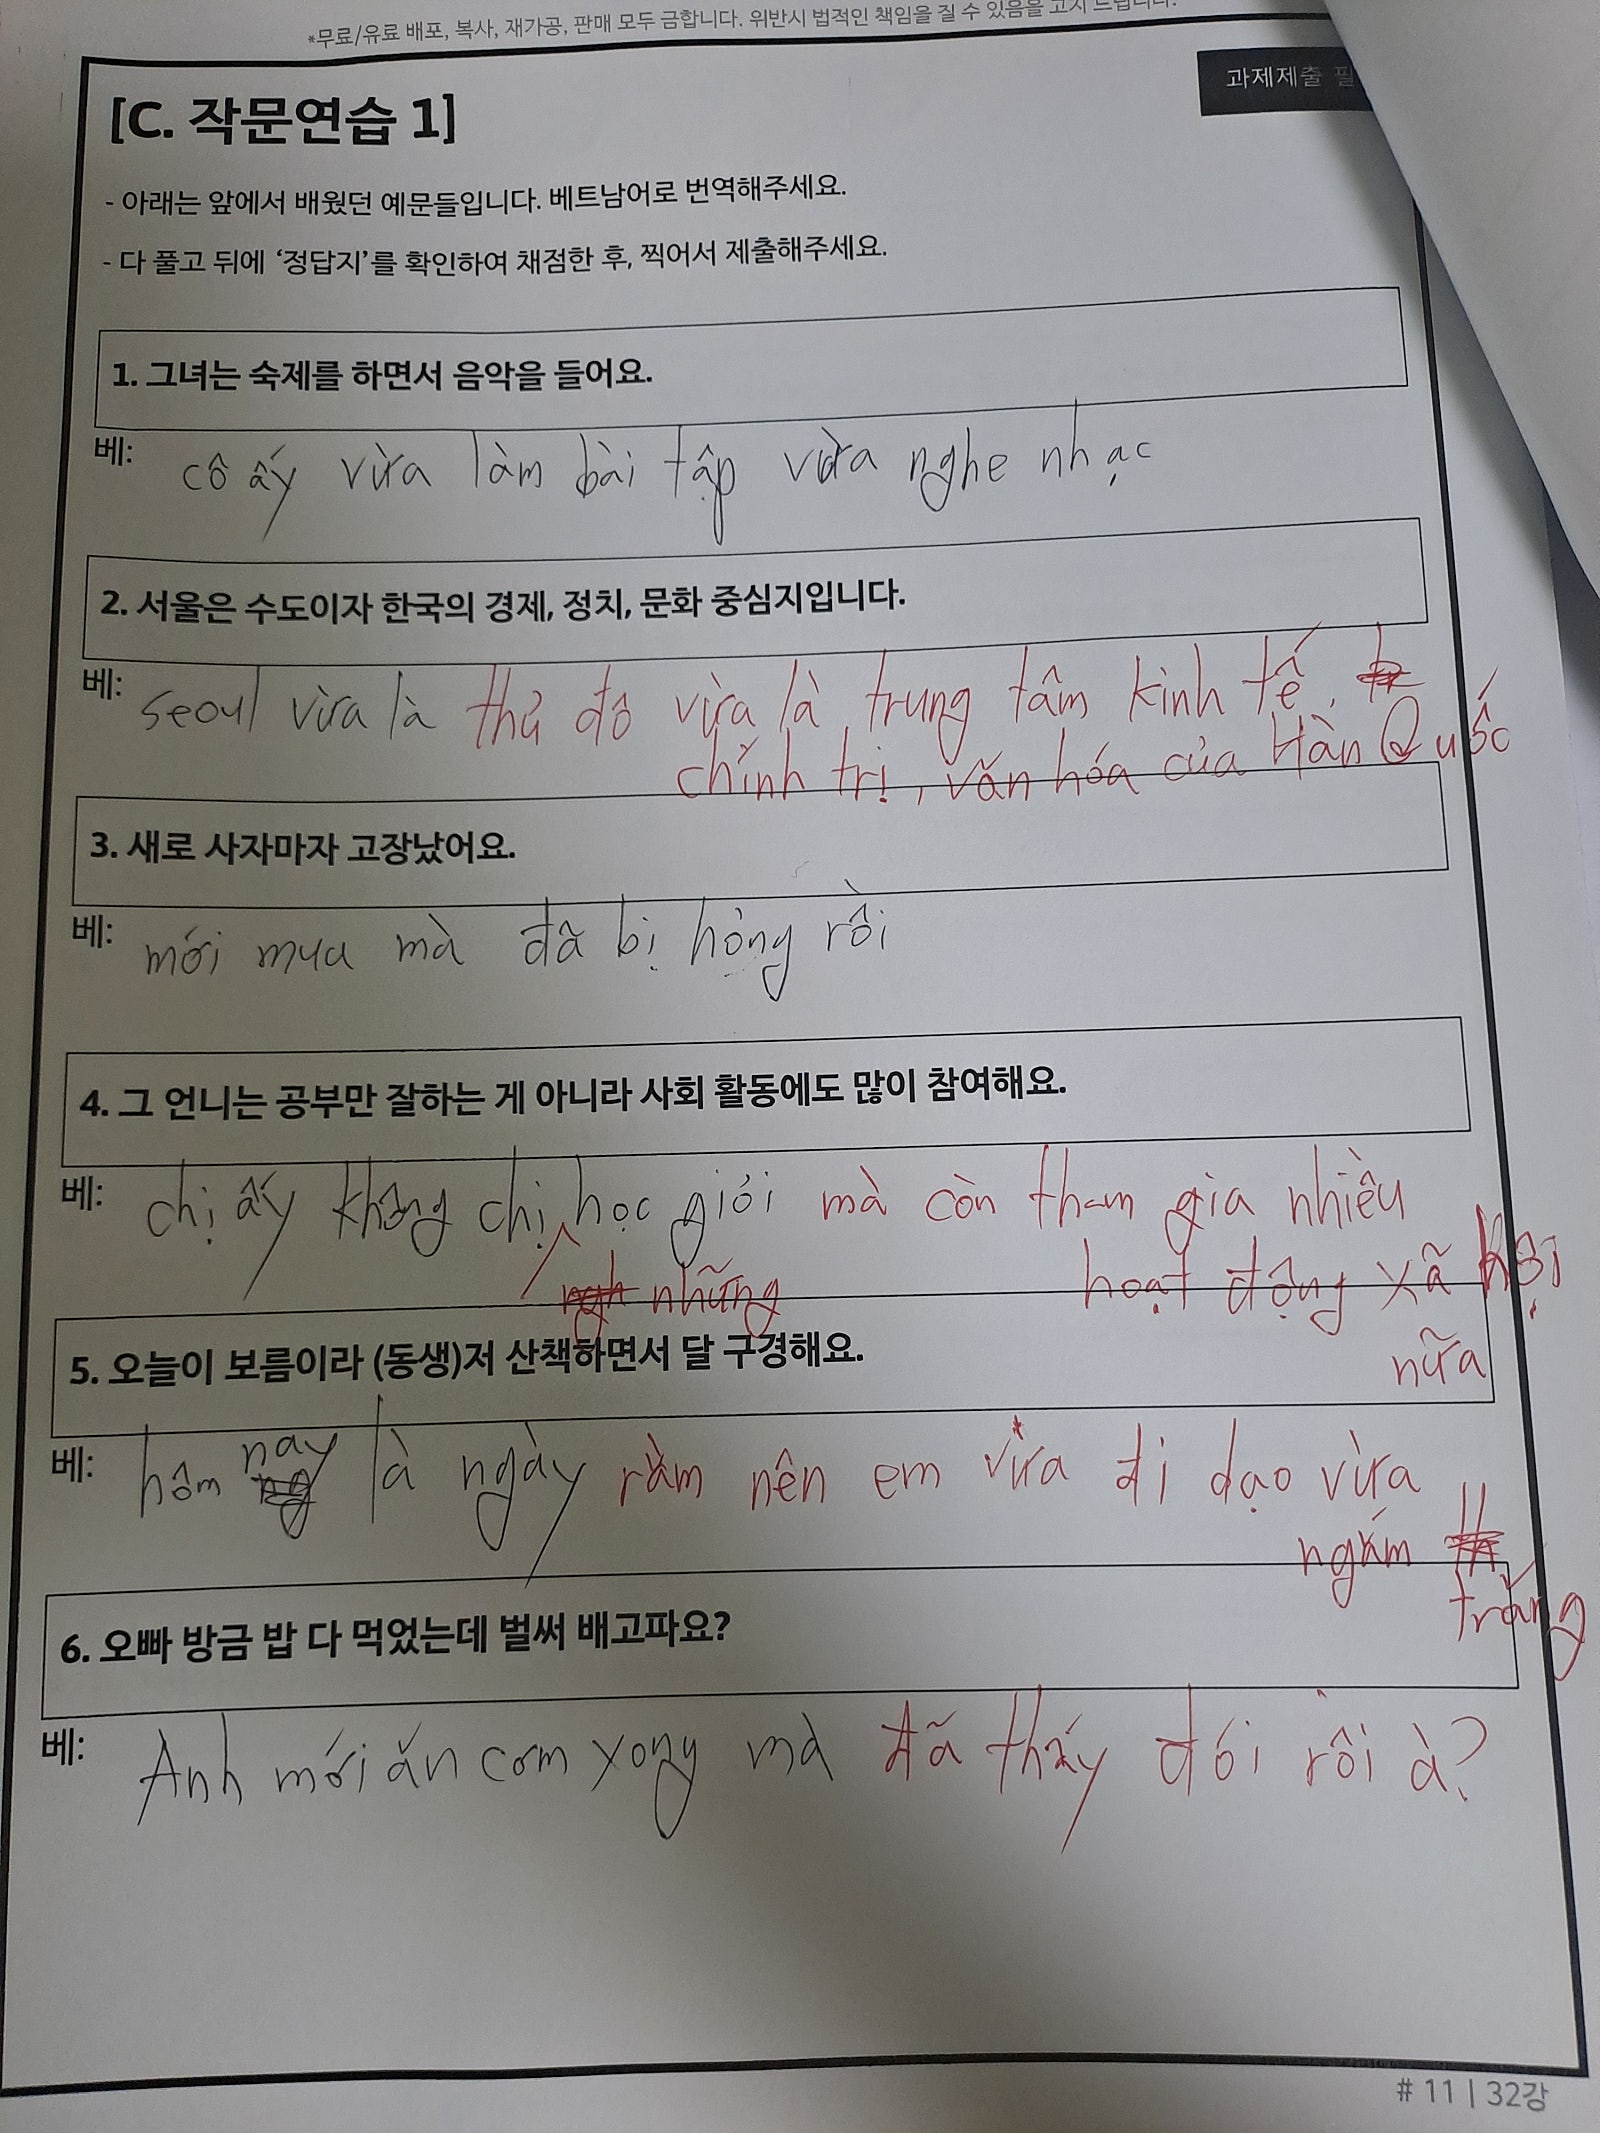 *무료/유료 배포, 복사, 재가공, 판매 모두 금합니다. 위반시 법적인 책임을 질 수 있음을 고지 드립니다.
과제제출
[C. 작문연습 1]
- 아래는 앞에서 배웠던 예문들입니다. 베트남어로 번역해주세요.
- 다 풀고 뒤에 ‘정답지’를 확인하여 채점한 후, 찍어서 제출해주세요.
1. 그녀는 숙제를 하면서 음악을 들어요.
베: cô ấy vừa làm bài tập vừa nghe nhạc
2. 서울은 수도이자 한국의 경제, 정치, 문화 중심지입니다.
베: seoul vừa là thủ đô vừa là trung tâm kinh tế,
chính trị, văn hóa của Hàn Quốc
3. 새로 사자마자 고장났어요.
베: mới mua mà đã bị hỏng rồi
4. 그 언니는 공부만 잘하는 게 아니라 사회 활동에도 많이 참여해요.
베: chị ấy không chị học giỏi mà còn tham gia nhiều
những hoạt động xã hội
nữa
5. 오늘이 보름이라 (동생)저 산책하면서 달 구경해요.
베: hôm nay là ngày rằm nên em vừa đi dạo vừa
ngắm
trăng
6. 오빠 방금 밥 다 먹었는데 벌써 배고파요?
베: Anh mới ăn cơm xong mà đã thấy đói rồi à?
# 11 | 32강